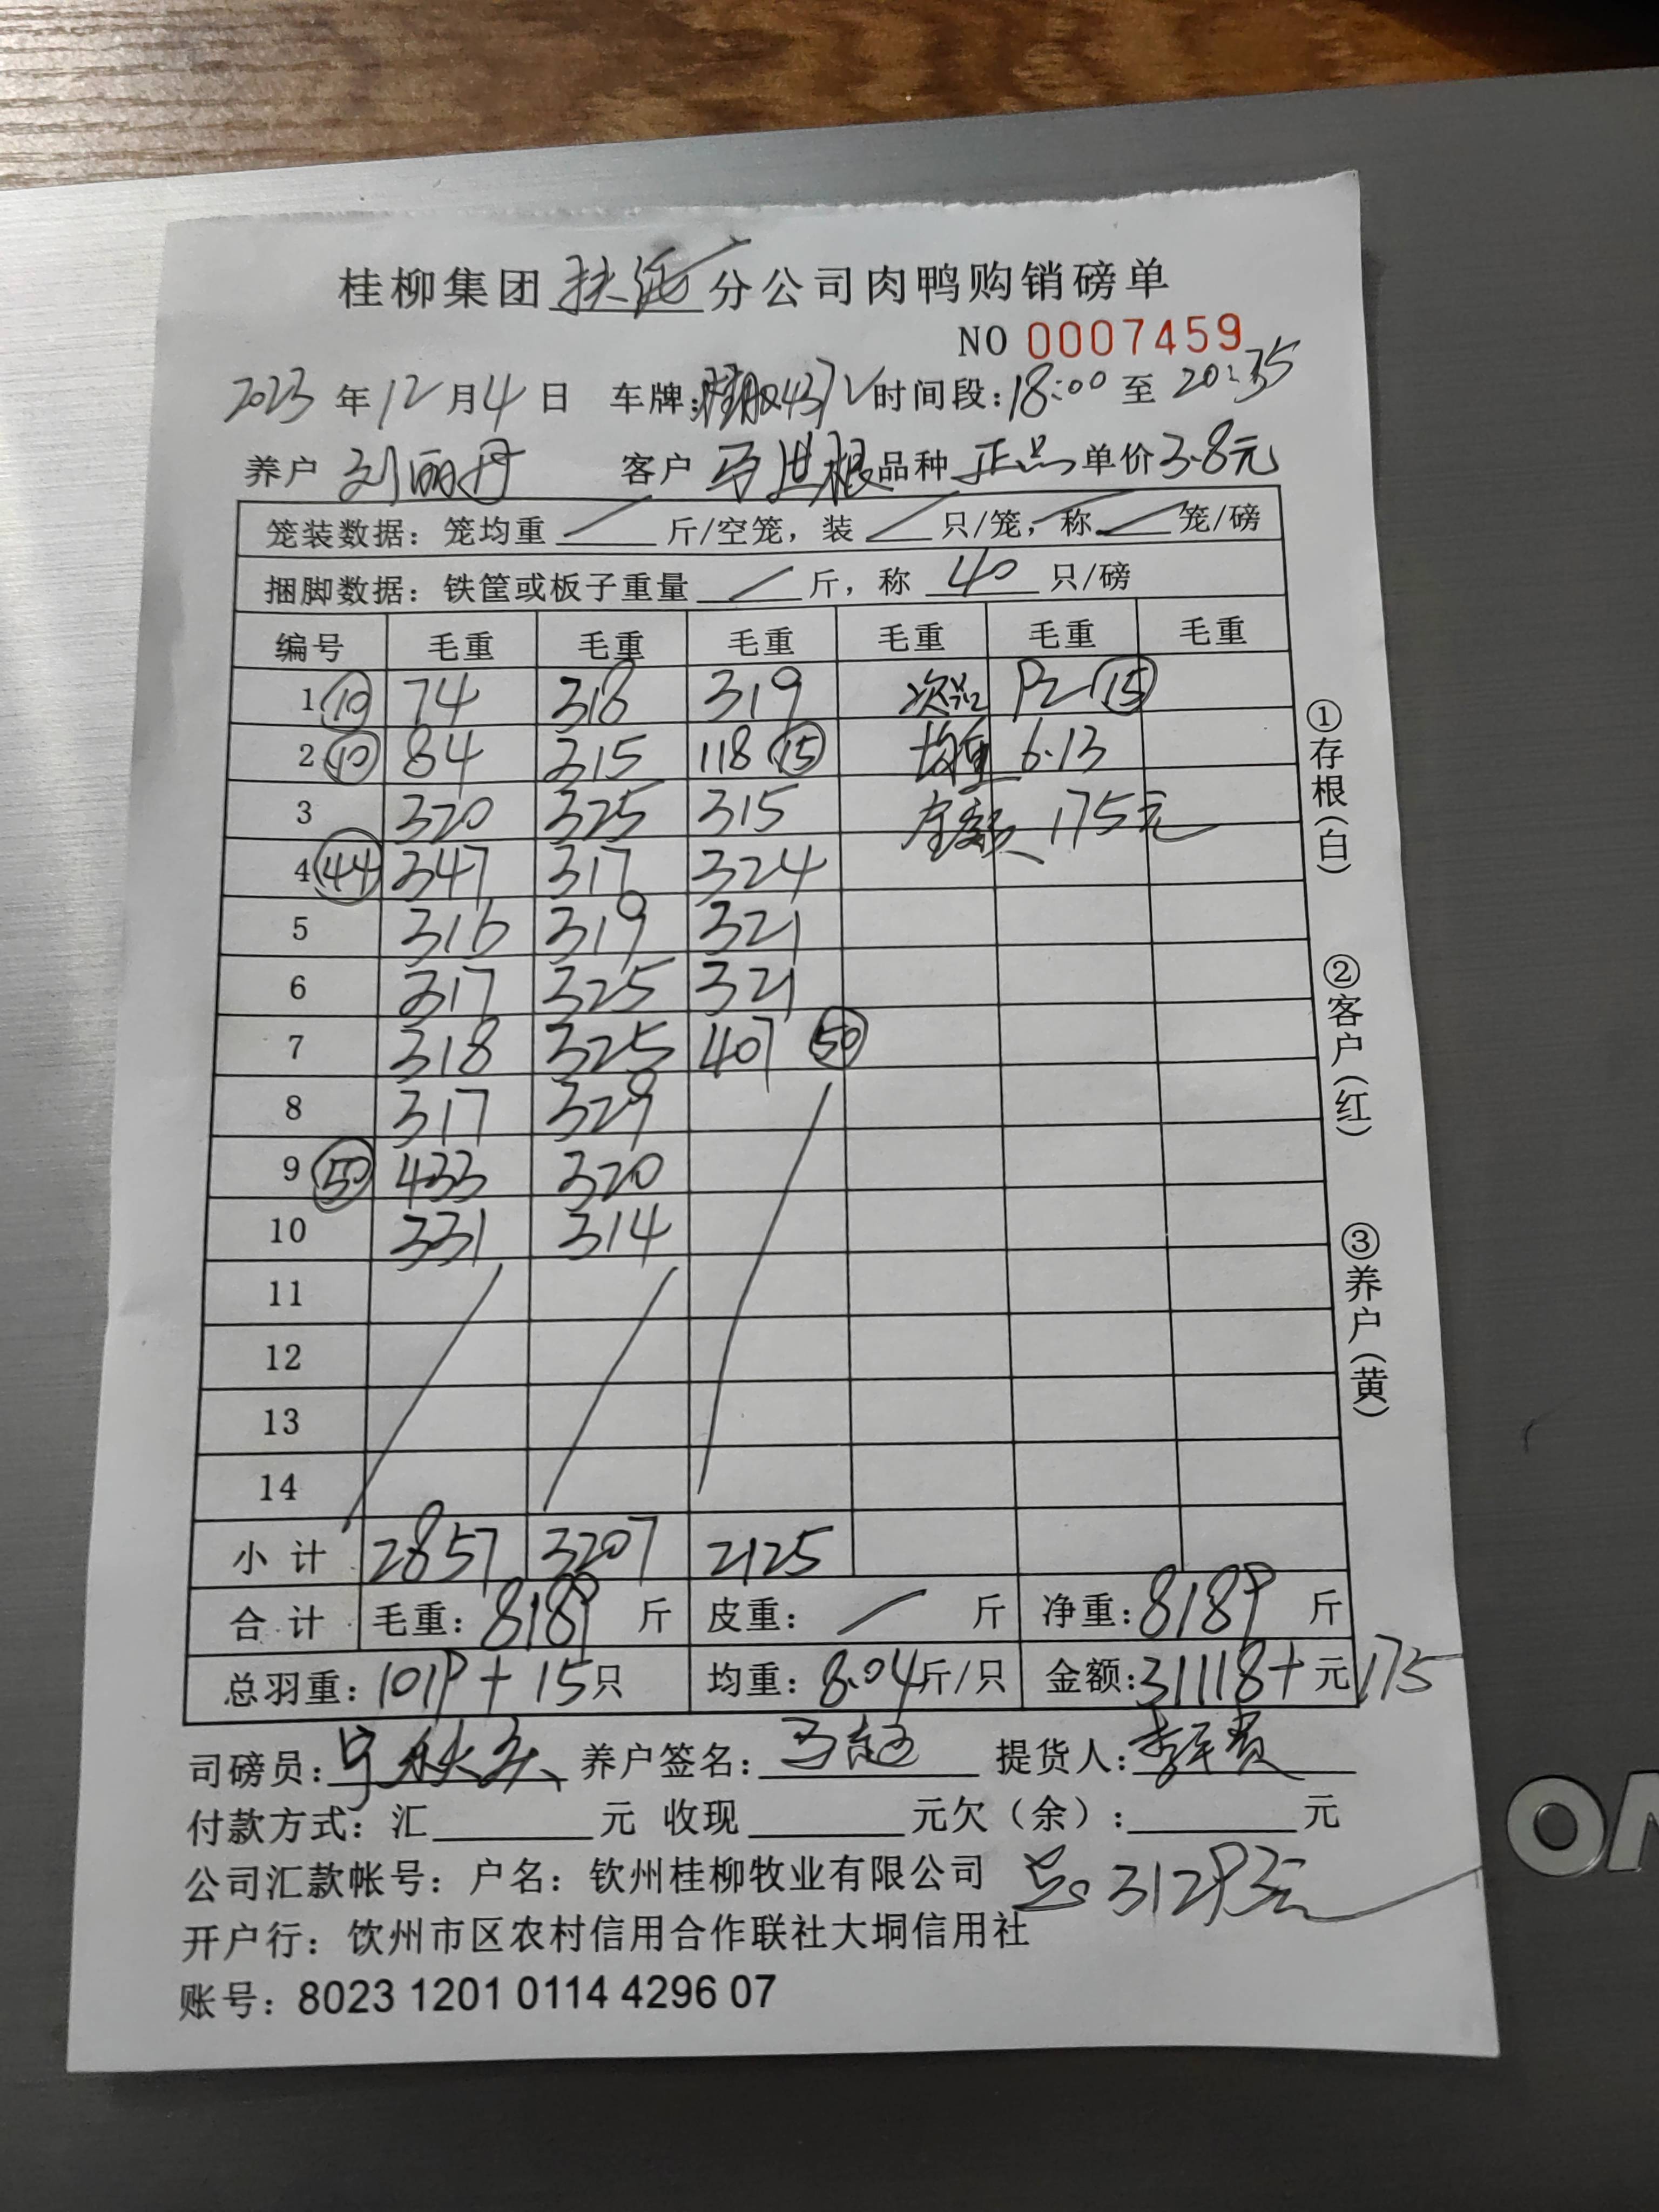 桂柳集团扶绥分公司肉鸭购销磅单
NO 0007459
2023年12月4日 车牌: 时间段:18:00至20:35
养户 刘丽丹 客户 马世根 品种 正品 单价3.8元
笼装数据：笼均重 / 斤/空笼，装 / 只/笼，称 / 笼/磅
捆脚数据：铁筐或板子重量 / 斤，称 40 只/磅
编号 毛重 毛重 毛重 毛重 毛重 毛重
1 ⑩ 74 318 319 次品 ⑮
2 ⑩ 84 315 118 ⑮ 均重 6.13
3 320 325 315 金额 175元
4 ㊹ 347 317 324
5 316 319 321
6 317 325 321
7 318 325 407 ㊿
8 317 329
9 ㊿ 433 320
10 331 314
11
12
13
14
小计 2857 3207 2125
合计 毛重：8189 斤 皮重： / 斤 净重：8189 斤
总羽重：1019+15只 均重：8.04斤/只 金额：31118+元175
司磅员： 养户签名：马超 提货人：
付款方式：汇 元 收现 元欠（余）： 元
公司汇款帐号：户名：钦州桂柳牧业有限公司 总31293元
开户行：饮州市区农村信用合作联社大垌信用社
账号：8023 1201 0114 4296 07
①存根（白）
②客户（红）
③养户（黄）